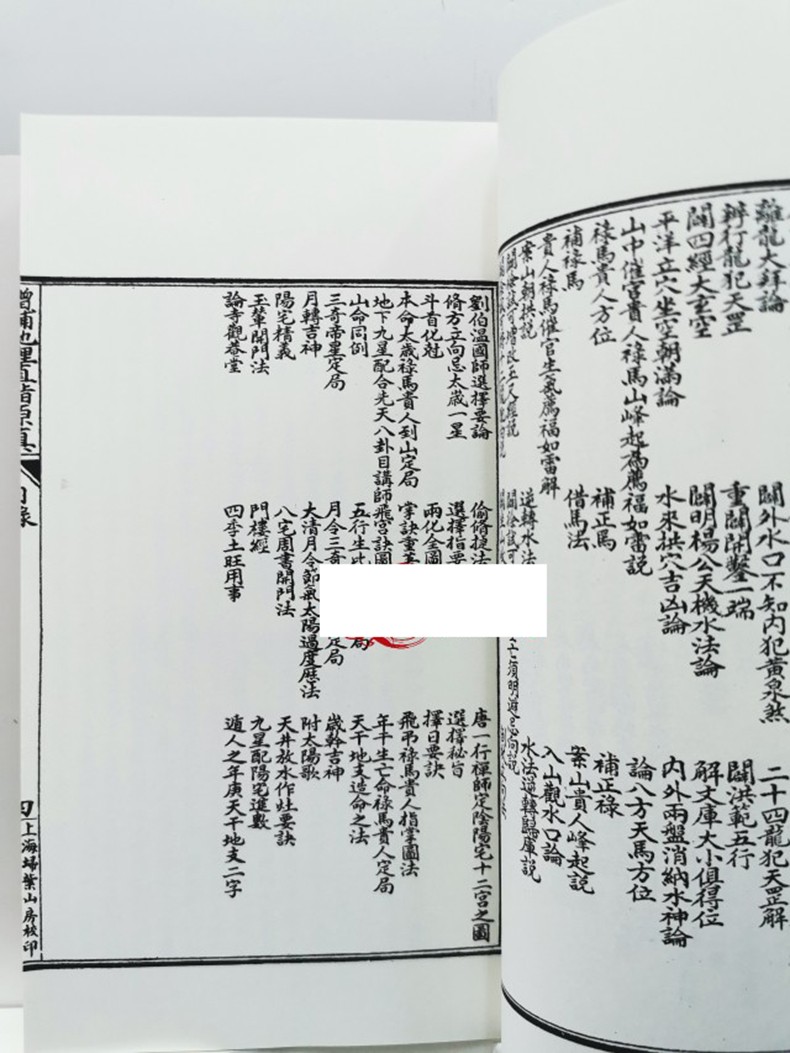 離龍大拜論
辨行龍犯天罡
闢四經大玄空
平洋立穴坐空朝滿論
山中催官貴人祿馬山峰起為薦福如雷說
祿馬貴人方位
補祿馬
貴人祿馬催官生氣薦福如雷解
案山朝拱說
關外水口不知內犯黃泉煞
重關開鑿一端
闢明楊公天機水法論
水來拱穴吉凶論
補正馬
借馬法
逆轉水法
二十四龍犯天罡解
闢洪範五行
解文庫大小俱得位
內外兩盤消納水神論
論八方天馬方位
補正祿
案山貴人峰起說
入山觀水口論
水法逆轉歸庫說
劉伯溫國師選擇要論
脩方立向忌太歲一星
斗首化尅
本命太歲祿馬貴人到山定局
地下九星配合先天八卦目講師飛宮訣圖
山命同例
三奇帝星定局
月轉吉神
陽宅精義
玉輦開門法
論寺觀菴堂
偷脩捷法
選擇指要
兩化全圖
掌訣重
五行生比
局
月令三奇
定局
大清月令節氣太陽過度歷法
八宅周書開門法
門樓經
四季土旺用事
唐一行禪師定陰陽宅十二宮之圖
選擇秘旨
擇日要訣
飛弔祿馬貴人指掌圖法
年干生亡命祿馬貴人定局
天干地支造命之法
歲幹吉神
附太陽歌
天井放水作灶要訣
九星配陽宅進數
遁人之年庚天干地支二字
增補地理直指原真
目錄
四
上海埽葉山房校印